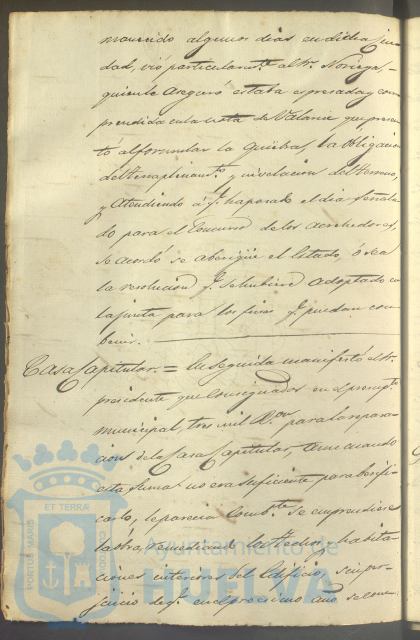 morecido algunos dias en dicha ciu-
dad, vió particularmte. al Sr. Noriega,
quien le aseguró estaba espresada y com-
prendida en la lista de Valanie que presen-
tó al formular la quiebra, la obligacion
del terraplenamto. y nivelacion del terreno,
y Atendiendo á qe. ha pasado el dia señala-
do para el Concurso de los acrehedores,
se acordó se aberigüe el Estado, ó sea
la resolucion qe. se hubiere adoptado en
la junta para los fines qe. puedan con-
benir.
Casa Capitular = En seguida manifestó el Sr.
presidente que consignados en el presupto.
municipal, tres mil Rs. para la repara-
cion de la Casa Capitular, aun cuando
esta suma no era suficiente para berifi-
carlo, le parecia combte. se emprendiese
la obra, remediando los techos, habita-
ciones interiores del Edificio, sin per-
juicio de qe. en el procsimo año se
PORTUS MARIS
ET TERRÆ
CUSTODIA
Ayuntamiento de
HUELVA